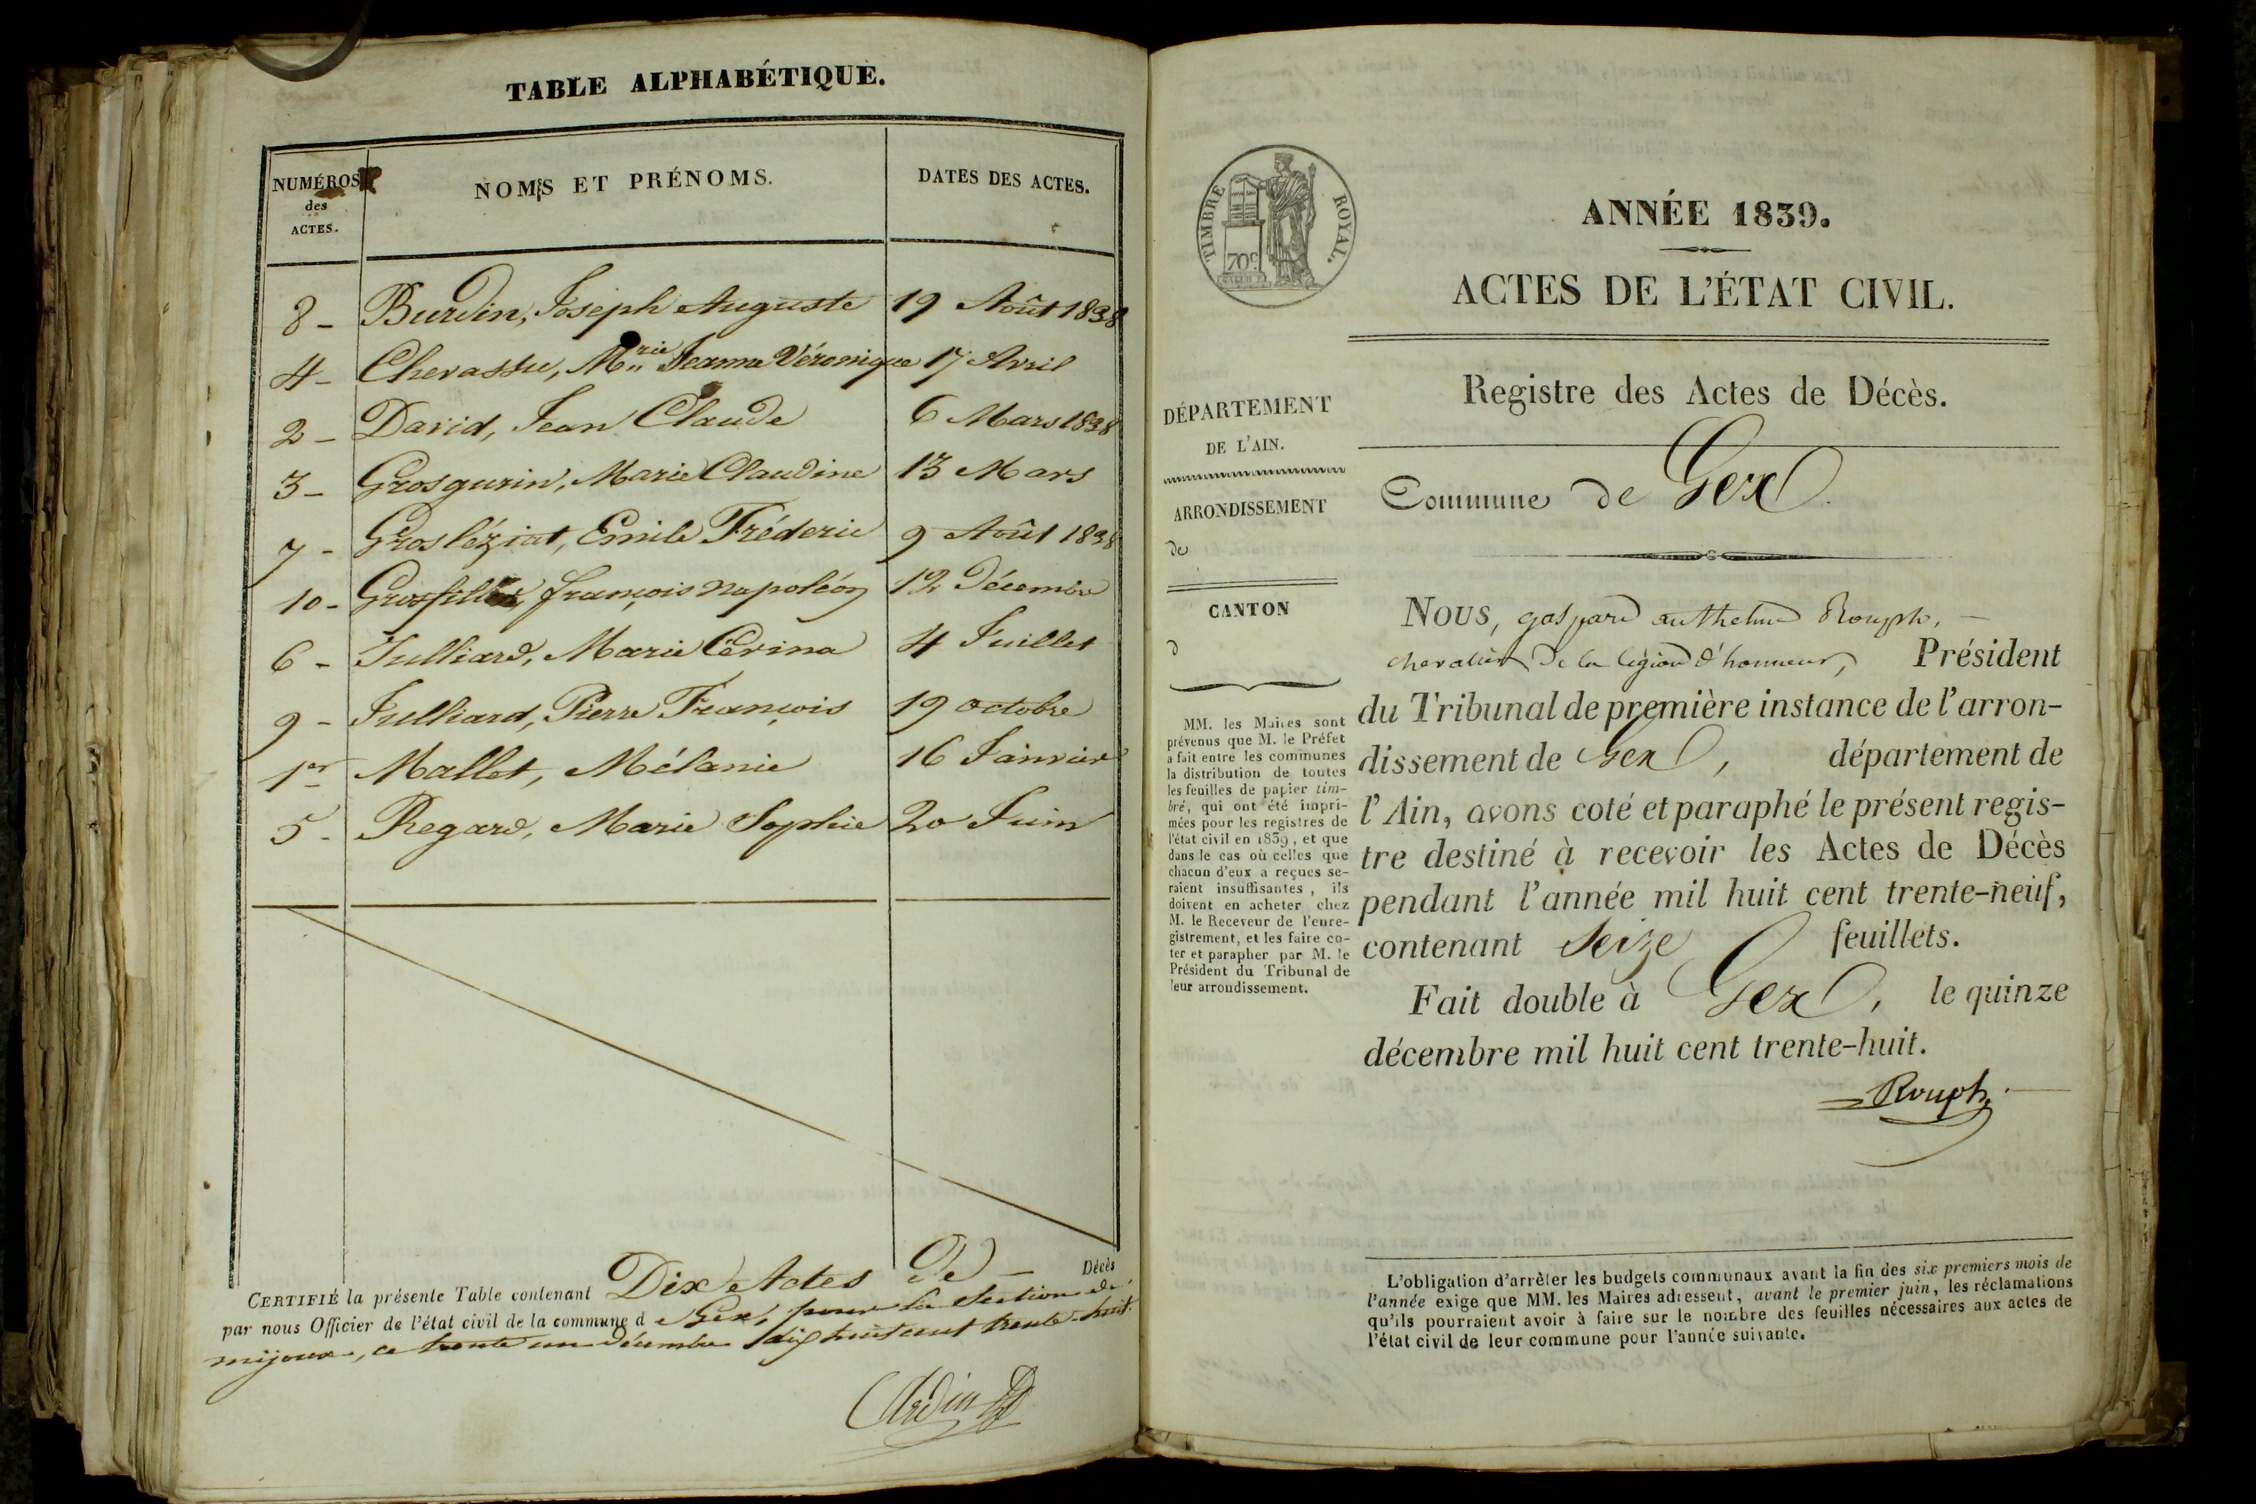 TABLE ALPHABÉTIQUE.
NUMÉROS
des
ACTES.
NOMS ET PRÉNOMS.
DATES DES ACTES.
8 - Burdin, Joseph Auguste 19 Août 1838
4 - Chevassu, Mrie Jeanne Véronique 17 Avril
2 - David, Jean Claude 6 Mars 1838
3 - Grosgurin, Marie Claudine 13 Mars
7 - Grosléziat, Emile Fréderic 9 Août 1838
10 - françois Napoléon 12 Décembre
6 - Julliard, Marie Cérina 4 Juillet
9 - Julliard, Pierre François 19 octobre
1er Mallet, Mélanie 16 Janvier
5 - Regard, Marie Sophie 20 Juin
CERTIFIÉ la présente Table contenant Dix Actes de - Décès
par nous Officier de l'état civil de la commune d e Gex, pour la Section de
mijoux, ce trente un décembre dix huit cent trente-huit.
TIMBRE ROYAL.
70c
ANNÉE 1839.
ACTES DE L'ÉTAT CIVIL.
Registre des Actes de Décès.
Commune de Gex.
DÉPARTEMENT
DE L'AIN.
ARRONDISSEMENT
de
CANTON
d
MM. les Maires sont
prévenus que M. le Préfet
a fait entre les communes
la distribution de toutes
les feuilles de papier tim-
bré, qui ont été impri-
mées pour les registres de
l'état civil en 1839, et que
dans le cas où celles que
chacun d'eux a reçues se-
raient insuffisantes, ils
doivent en acheter chez
M. le Receveur de l'enre-
gistrement, et les faire co-
ter et parapher par M. le
Président du Tribunal de
leur arrondissement.
NOUS, gaspard anthelme Rouph,
chevalier De la légion d'honneur, Président
du Tribunal de première instance de l'arron-
dissement de Gex, département de
l'Ain, avons coté et paraphé le présent regis-
tre destiné à recevoir les Actes de Décès
pendant l'année mil huit cent trente-neuf,
contenant Seize feuillets.
Fait double à Gex, le quinze
décembre mil huit cent trente-huit.
Rouph
L'obligation d'arrêter les budgets communaux avant la fin des six premiers mois de
l'année exige que MM. les Maires adressent, avant le premier juin, les réclamations
qu'ils pourraient avoir à faire sur le nombre des feuilles nécessaires aux actes de
l'état civil de leur commune pour l'année suivante.